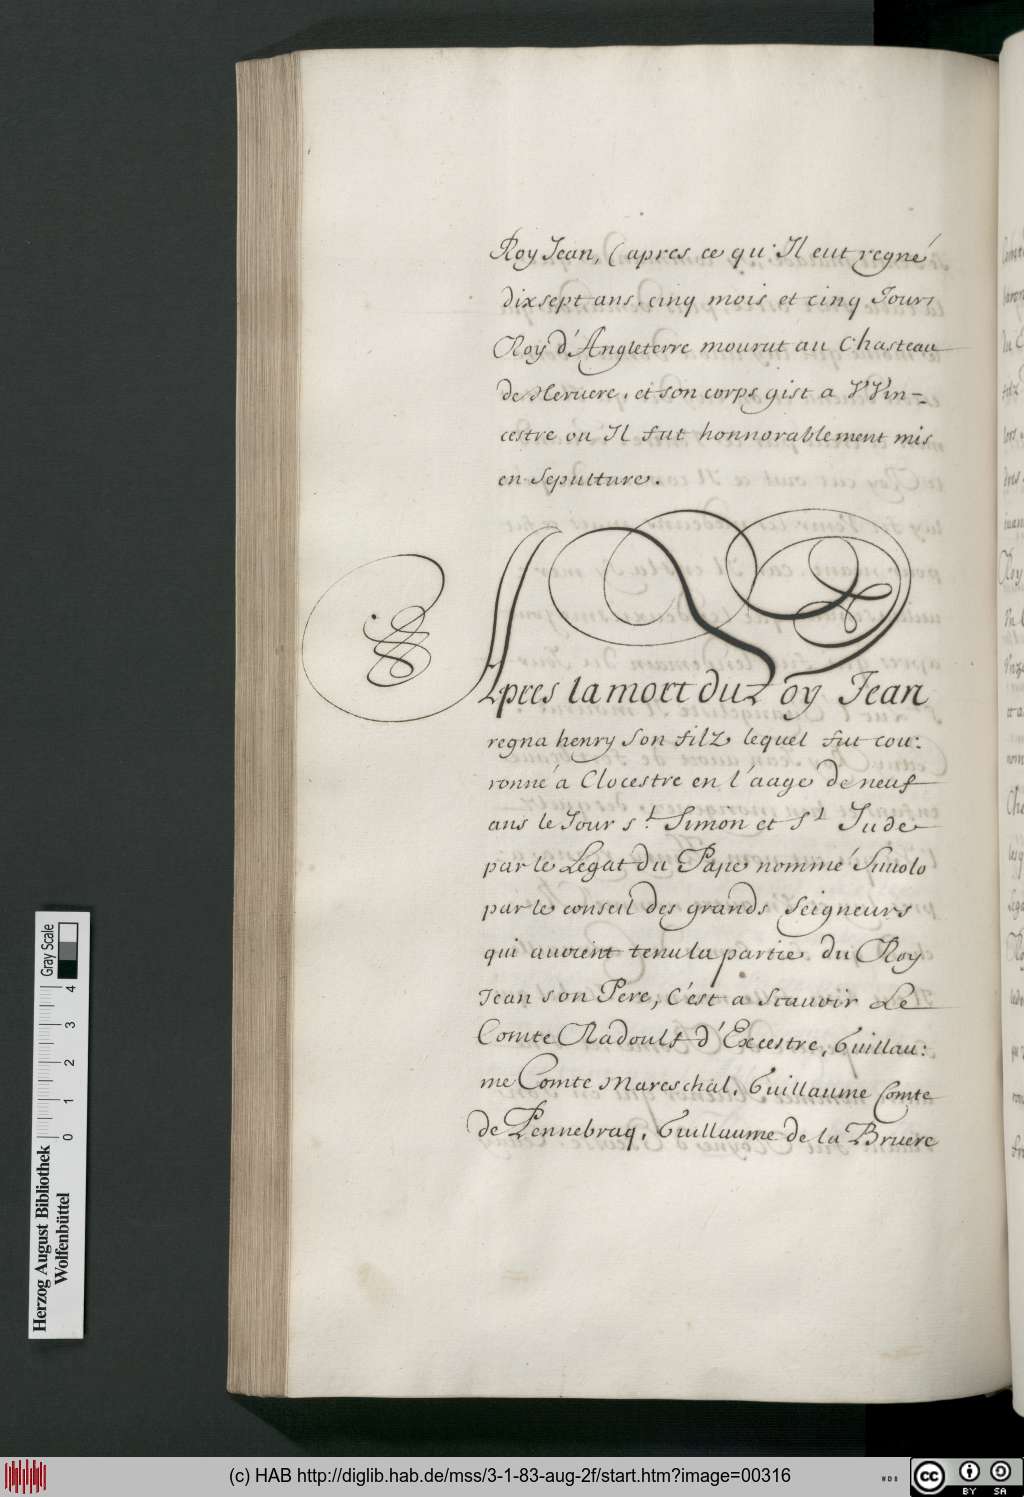 Roy Jean, (apres ce qu'Il eut regné
dixsept ans. cinq mois et cinq Jours
Roy d'Angleterre mourut au Chasteau
de Neruere, et son corps gist a VVin-
cestre ou Il fut honnorablement mis
en Sepulture.
Apres la mort du Roy Jean
regna henry Son filz lequel fut cou:
ronné a Clocestre en l'aage de neuf
ans le Jour St. Simon et St Jude
par le Legat du Pape nommé
par le conseil des grands Seigneurs
qui avoient tenu la partie du Roy
Jean son Pere, C'est a Scavoir Le
Comte Radoulf d'Excestre, Guillau:
me Comte Mareschal, Guillaume Comte
de Pennebraq, Guillaume de la Bruere
Herzog August Bibliothek
Wolfenbüttel
Gray Scale
0 1 2 3 4
(c) HAB http://diglib.hab.de/mss/3-1-83-aug-2f/start.htm?image=00316
WDB
cc BY SA